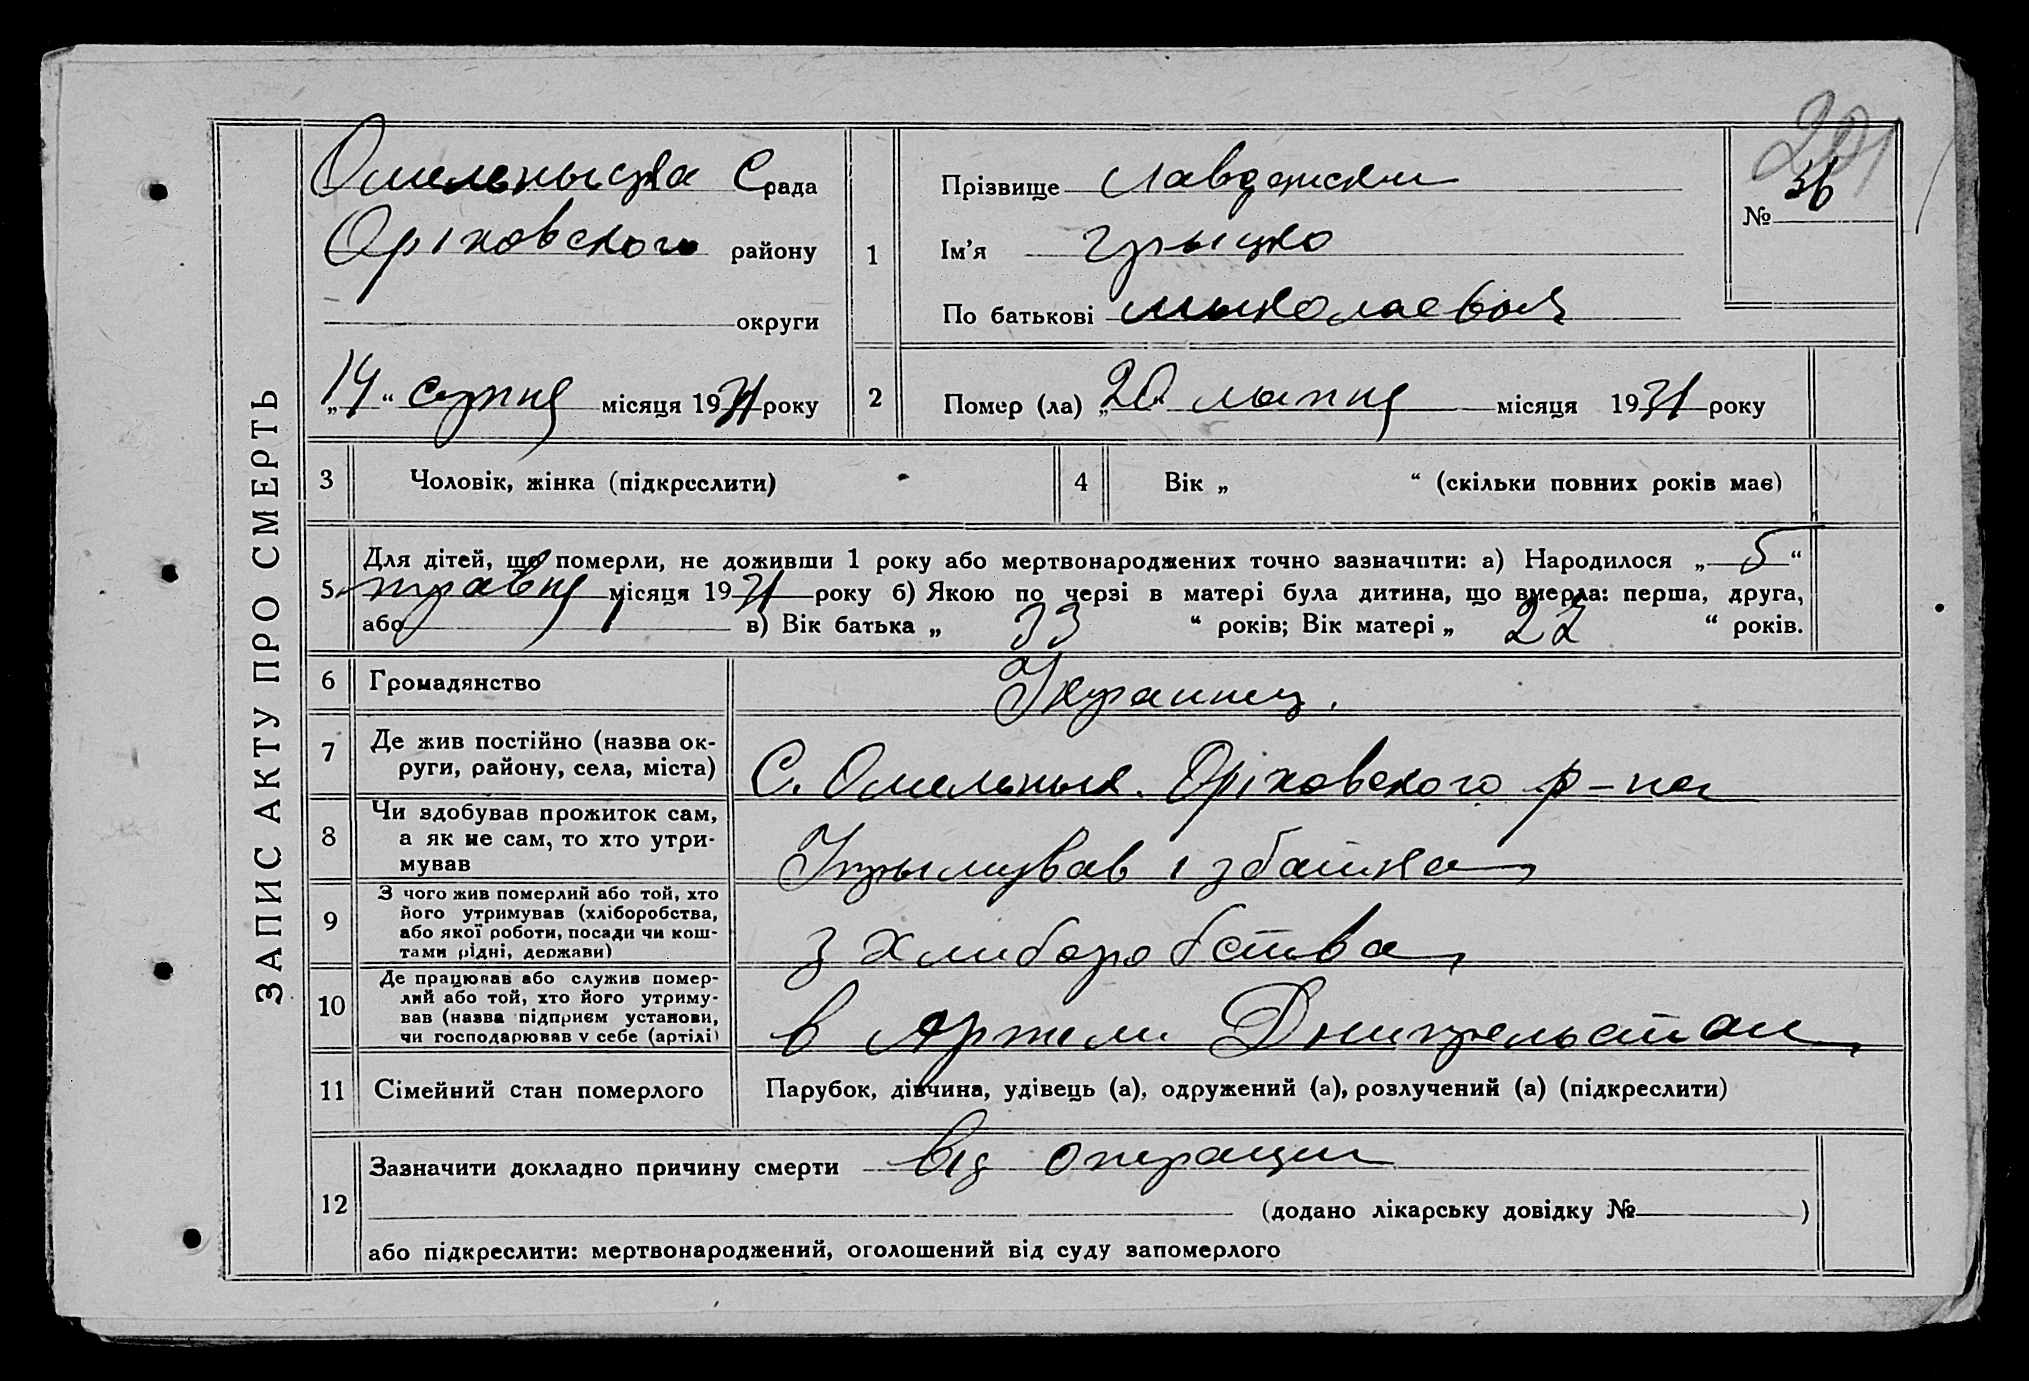 201
ЗАПИС АКТУ ПРО СМЕРТЬ
Омельныцка С рада
Оріховского району
округи
„14“ серпня місяця 1931 року
1
Прізвище
Ім'я Грыцко
По батькові Мыколаевыч
№ 36
2
Помер (ла) „20 лыпня місяця 1931 року
3 Чоловік, жінка (підкреслити)
4 Вік „ “ (скільки повних років має)
5 Для дітей, що померли, не доживши 1 року або мертвонароджених точно зазначити: а) Народилося „5“
травня місяця 1931 року б) Якою по черзі в матері була дитина, що вмерла: перша, друга,
або в) Вік батька „ 33 “ років; Вік матері „ 27 “ років.
6 Громадянство Украинец.
7 Де жив постійно (назва ок-
руги, району, села, міста)
С. Омельнык. Оріховского р-на
8 Чи здобував прожиток сам,
а як не сам, то хто утри-
мував
Утрымував
9 З чого жив померлий або той, хто
його утримував (хліборобства,
або якої роботи, посади чи кош-
тами рідні, держави)
з хлиборобства
10 Де працював або служив помер-
лий або той, хто його утриму-
вав (назва підприєм установи,
чи господарював у себе (артілі)
в Артели Днипрельстан
11 Сімейний стан померлого Парубок, дівчина, удівець (а), одружений (а), розлучений (а) (підкреслити)
12 Зазначити докладно причину смерти від операции
(додано лікарську довідку № )
або підкреслити: мертвонароджений, оголошений від суду запомерлого